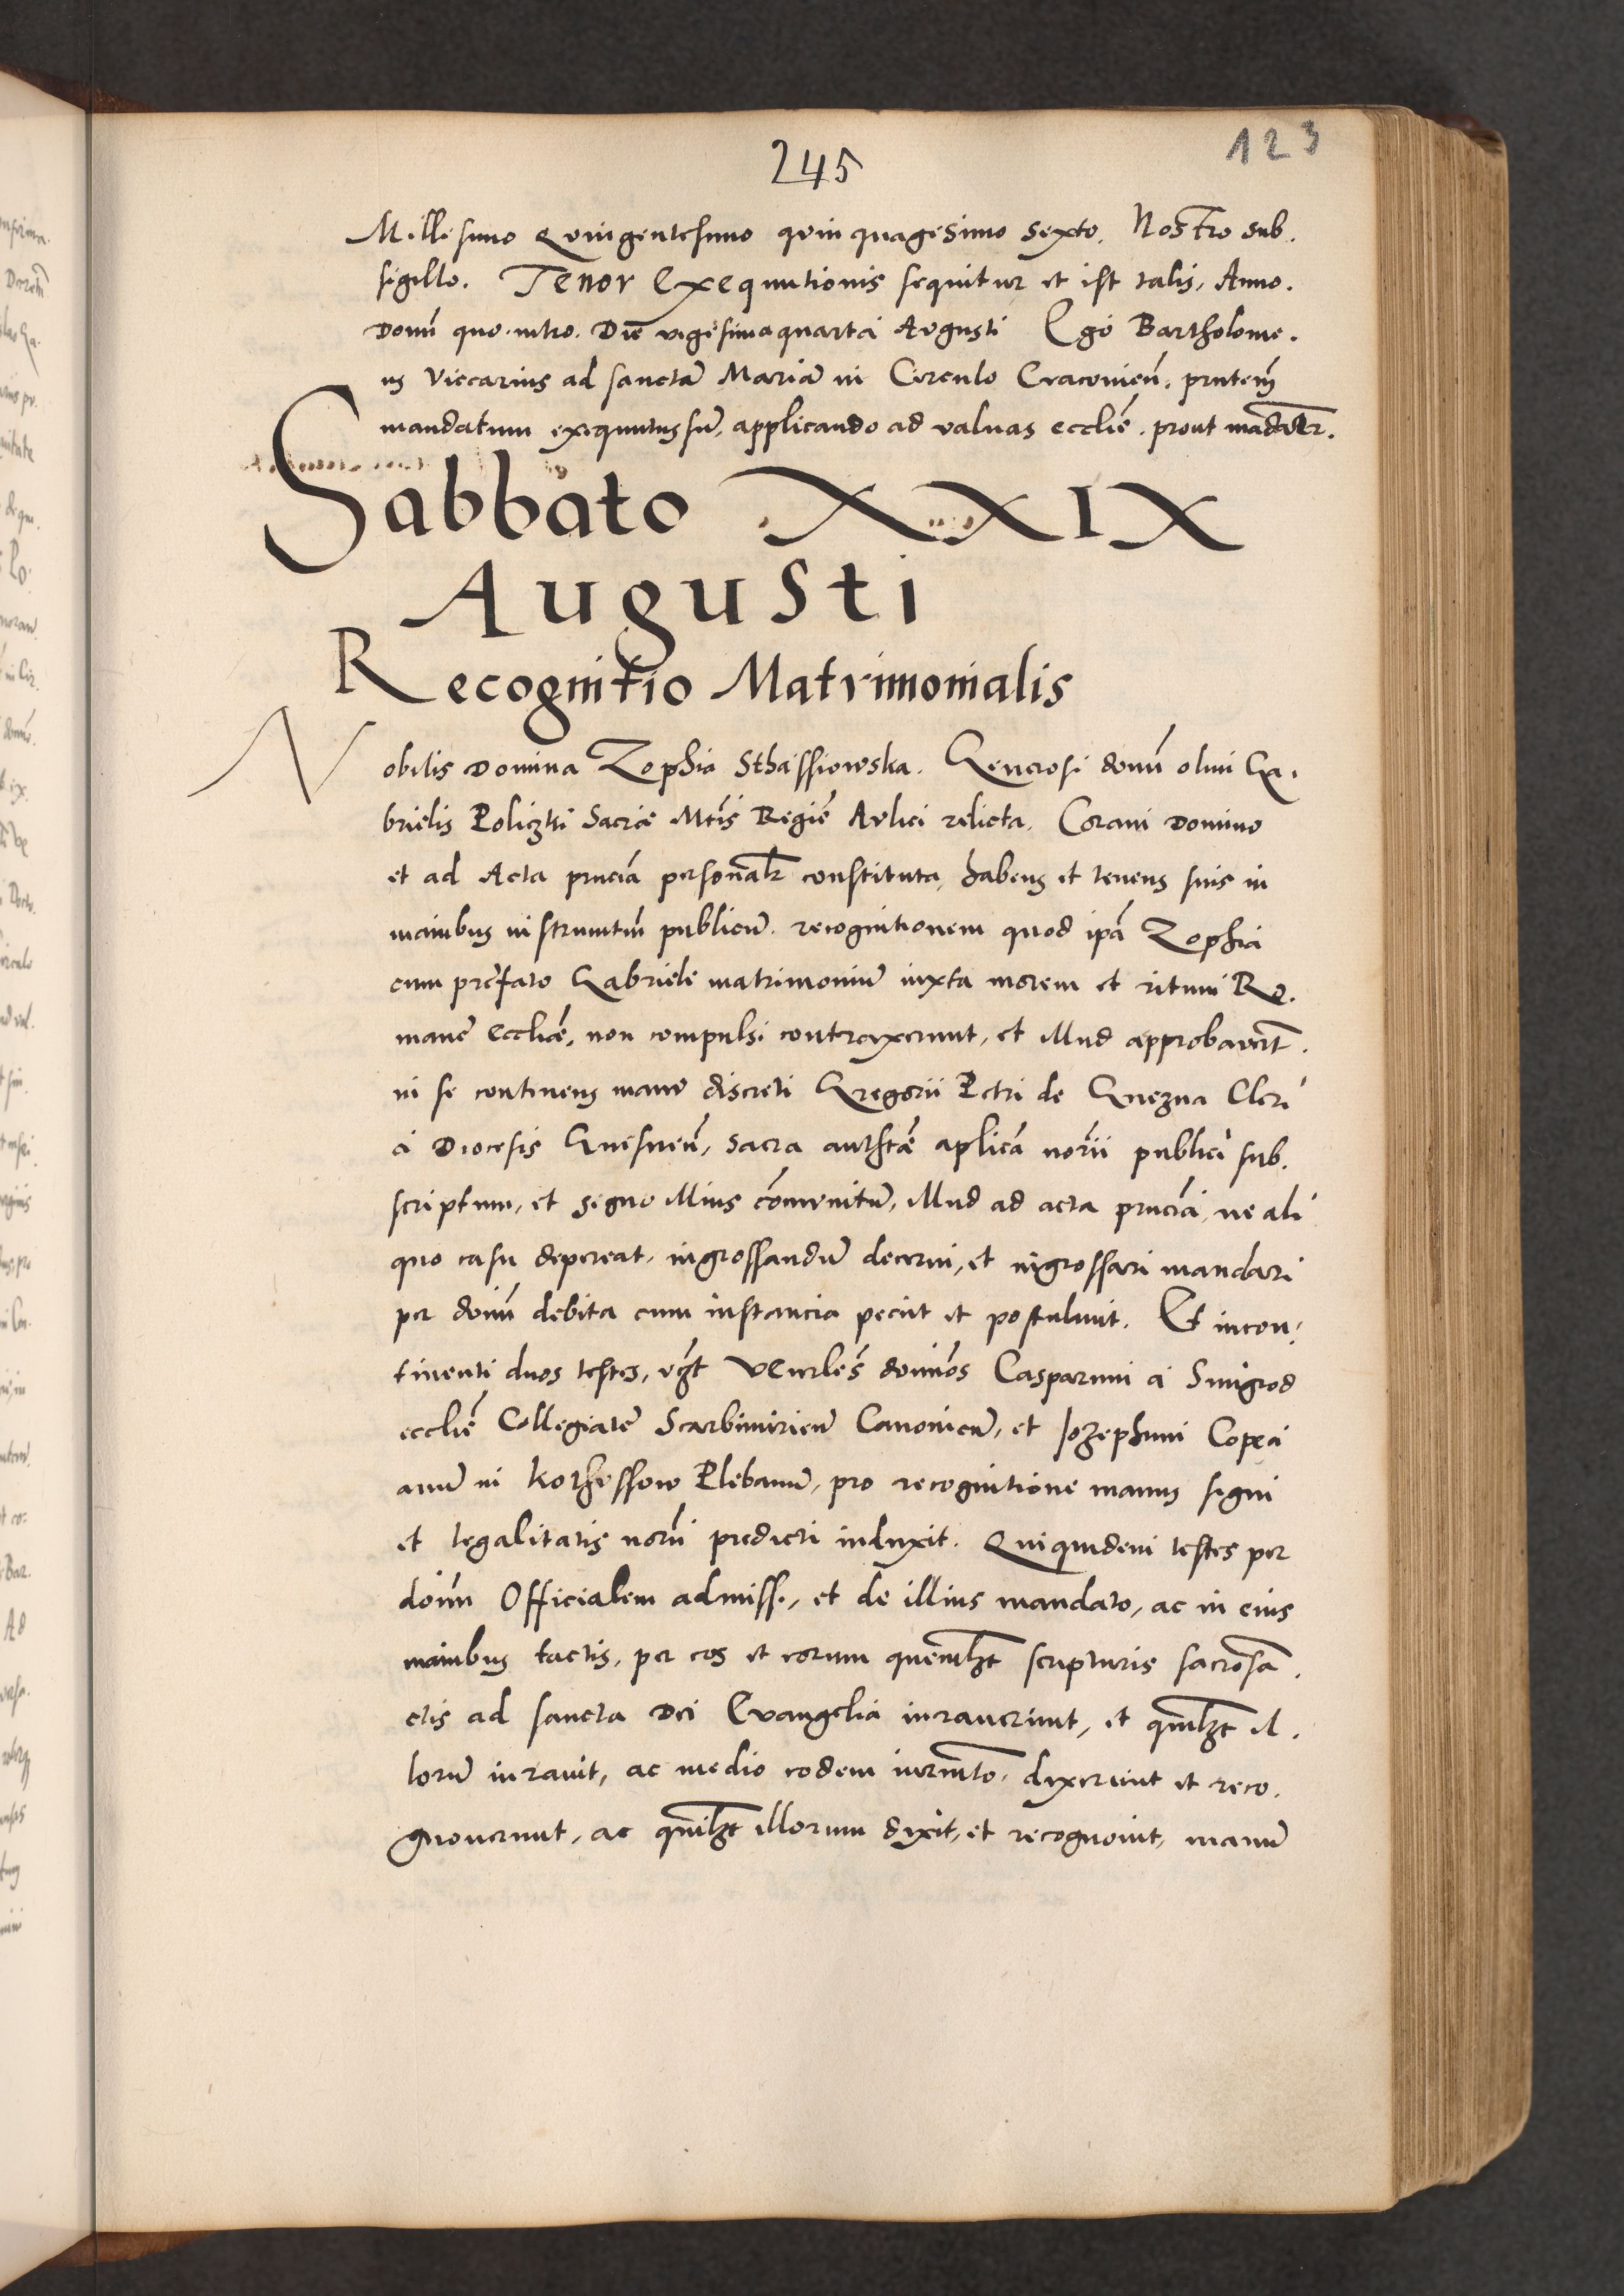 245
123
Millesimo Quingentesimo quinquagesimo sexto. Nostro sub.
sigillo. Tenor Exequutionis sequitur et est talis, Anno.
Domī quo. intro. Die vigesimaquarta Augusti Ego Bartholome.
us Viccarius ad sanctā Mariā in Circulo Cracovień. pn̄tem̄
mandatum exequutus sū, applicando ad valvas eccliē. prout mādatr̄.
Sabbato XXIX
Augusti
Recognitio Matrimonialis
Nobilis Domina Zophia Sthassiowska. Generosi domī olim Ga.
brielis Policzki Sacrae Mt̄is Regie Aulici relicta. Coram Domino
et ad Acta pn̄cia personalr̄ constituta, habens et tenens suis in
manibus instrumtm̄ publicū. recognitionem quod ipā Zophia
cum prefato Gabriele matrimoniū iuxta morem et ritum Ro.
mane Eccliē, non compulsi contraxerunt, et illud approbavert̄.
in se continens manu discreti Gregorii Petri de Gnezna Cleri
ci Diocesis Gnesneń, sacra autht̄e aplicā norii publici sub.
scriptum, et signo illius cōmunitū, illud ad acta pn̄cia, ne ali
quo casu depereat, ingrossandū decerni, et ingrossari mandari
per domī debita cum instancia peciit et postulavit. Et incon,
tinenti duos testes, vz̄t Venerles̄ domīos Casparum a Smigrod
eccliē Collegiate Scarbimirień Canonicū, et Jozephum Copci
anū in Kothessow Plebanū, pro recognitione manus signi
et legalitatis norii predicti induxit. Quiquidem testes per
domī Officialem admiss., et de illius mandato, ac in eius
manibus tactis, per eos et eorum quemlz̄t scripturis sacrosā.
ctis ad sancta Dei Evangelia iuraverunt, et quilz̄t il.
lorū iuravit, ac medio eodem iurmt̄o, dixerunt et reco.
gnoverunt, ac quilz̄t illorum dixit, et recognovit, manū